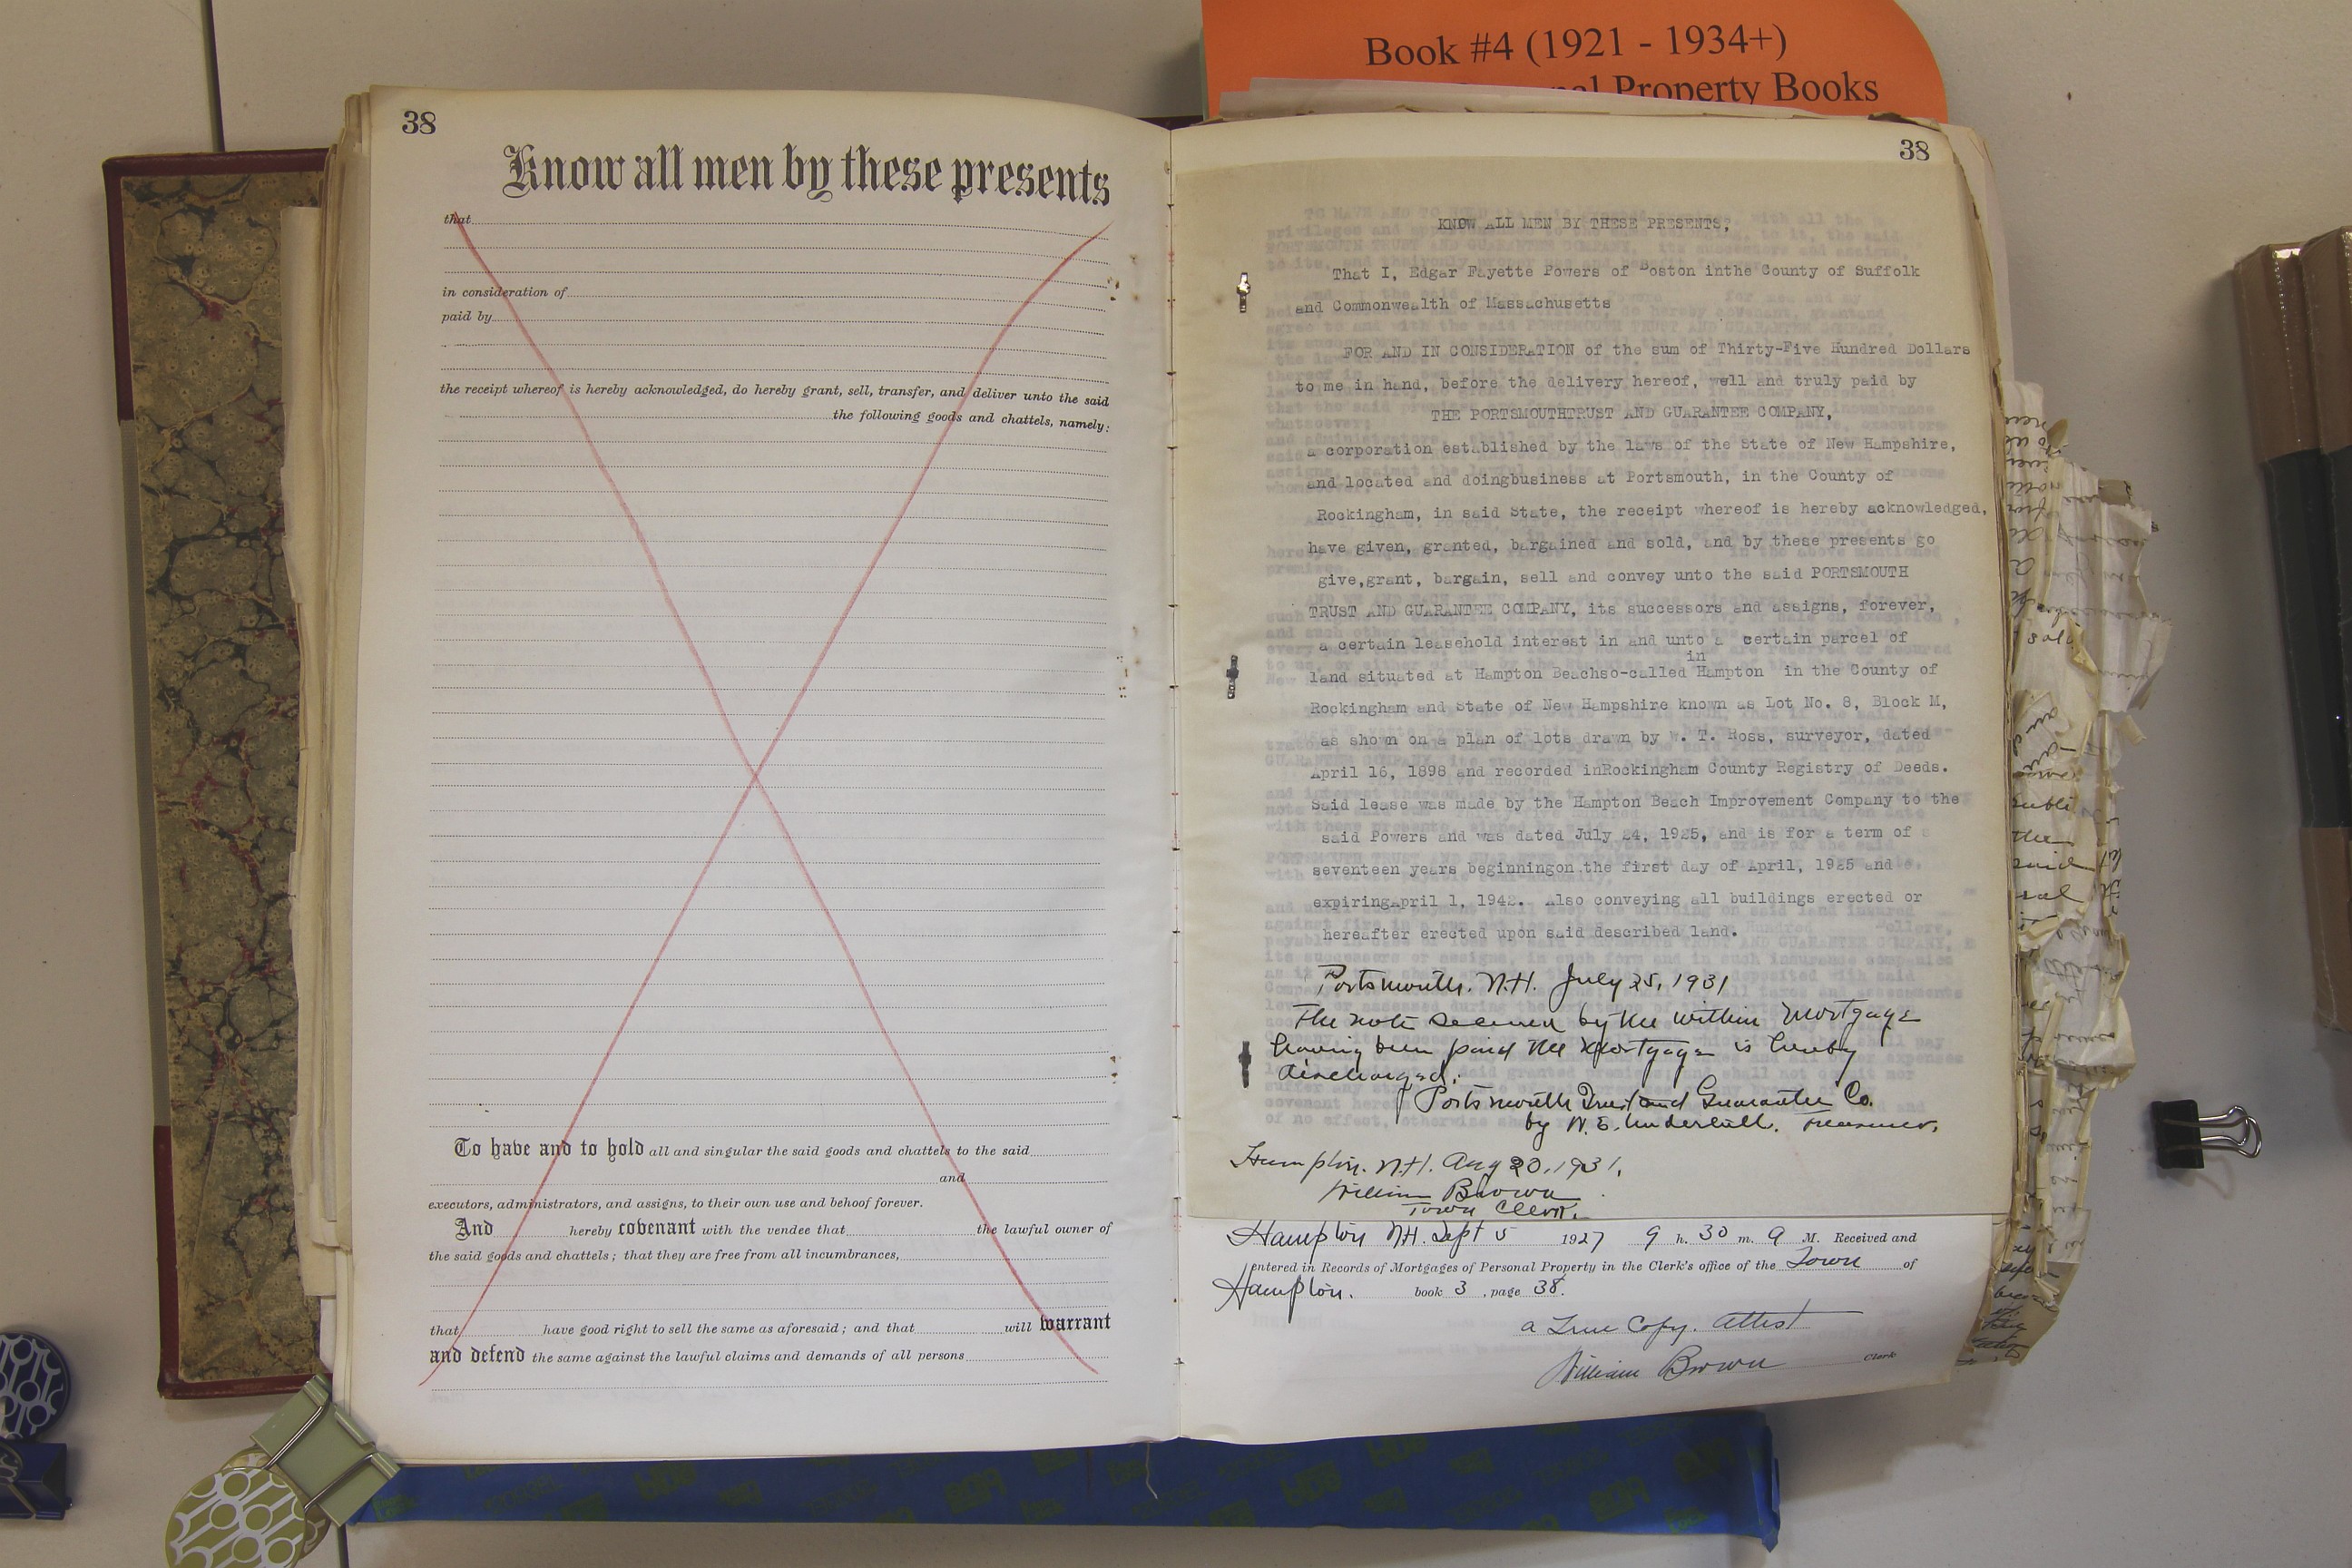 Book #4 (1921 - 1934+)
Property Books
38
Know all men by these presents
that
in consideration of
paid by
the receipt whereof is hereby acknowledged, do hereby grant, sell, transfer, and deliver unto the said
the following goods and chattels, namely:
To have and to hold all and singular the said goods and chattels to the said
and
executors, administrators, and assigns, to their own use and behoof forever.
And hereby covenant with the vendee that the lawful owner of
the said goods and chattels; that they are free from all incumbrances,
that have good right to sell the same as aforesaid; and that will warrant
and defend the same against the lawful claims and demands of all persons
38
KNOW ALL MEN BY THESE PRESENTS,
That I, Edgar Fayette Powers of Boston inthe County of Suffolk
and Commonwealth of Massachusetts
FOR AND IN CONSIDERATION of the sum of Thirty-Five Hundred Dollars
to me in hand, before the delivery hereof, well and truly paid by
THE PORTSMOUTHTRUST AND GUARANTEE COMPANY,
a corporation established by the laws of the State of New Hampshire,
and located and doingbusiness at Portsmouth, in the County of
Rockingham, in said State, the receipt whereof is hereby acknowledged,
have given, granted, bargained and sold, and by these presents go
give,grant, bargain, sell and convey unto the said PORTSMOUTH
TRUST AND GUARANTEE COMPANY, its successors and assigns, forever,
a certain leasehold interest in and unto a certain parcel of
in
land situated at Hampton Beachso-called Hampton in the County of
Rockingham and State of New Hampshire known as Lot No. 8, Block M,
as shown on a plan of lots drawn by W. T. Ross, surveyor, dated
April 16, 1898 and recorded inRockingham County Registry of Deeds.
Said lease was made by the Hampton Beach Improvement Company to the
said Powers and was dated July 24, 1925, and is for a term of
seventeen years beginningon the first day of April, 1925 and
expiringApril 1, 1942. Also conveying all buildings erected or
hereafter erected upon said described land.
Portsmouth. N.H. July 25, 1931
The note secured by the within Mortgage
having been paid the Mortgage is hereby
discharged.
Portsmouth Trust and Guarantee Co.
by W. E. Underhill. Treasurer.
Hampton. N.H. Aug 20, 1931.
William Brown
Town Clerk.
Hampton N.H. Sept 5 1927 9 h. 30 m. A M. Received and
entered in Records of Mortgages of Personal Property in the Clerk's office of the Town of
Hampton. book 3, page 38.
A True Copy. Attest
William Brown Clerk